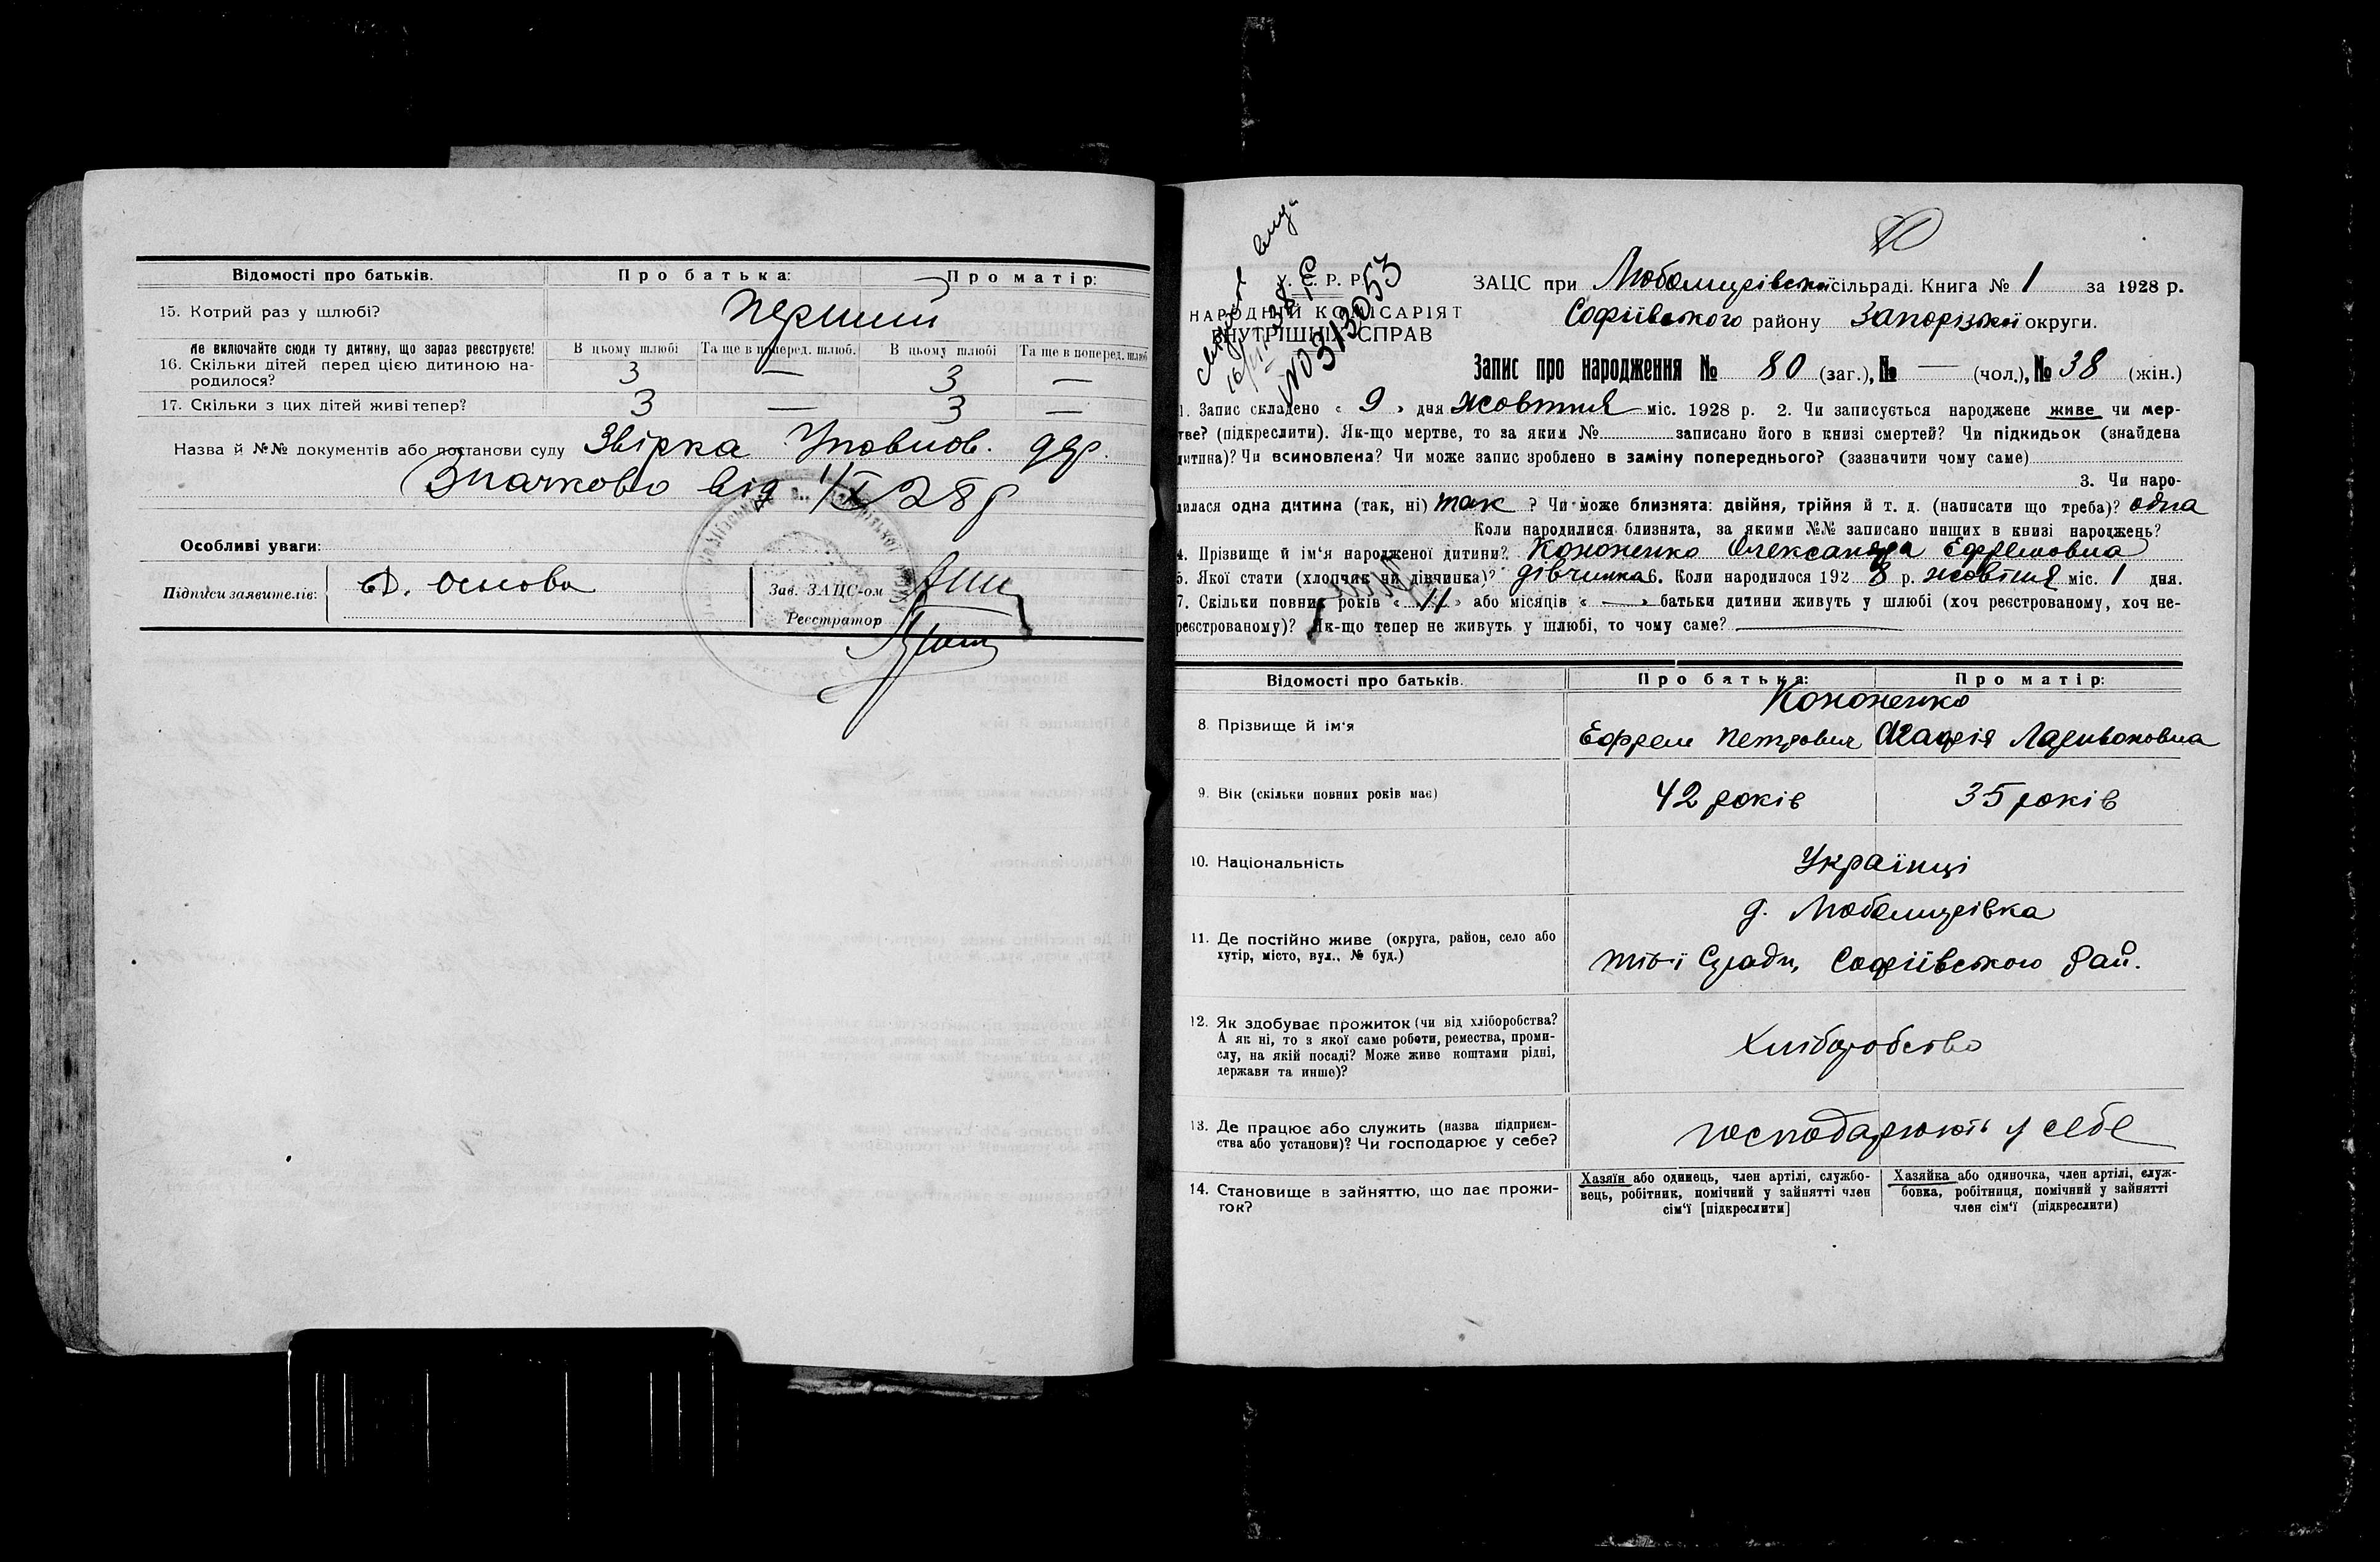 Відомості про батьків. Про батька: Про матір:
15. Котрий раз у шлюбі? перший
Не включайте сюди ту дитину, що зараз реєструєте!
16. Скільки дітей перед цією дитиною народилося?
В цьому шлюбі Та ще в поперед. шлюб. В цьому шлюбі Та ще в поперед. шлюб
3 — 3 —
17. Скільки з цих дітей живі тепер? 3 — 3 —
Назва й №№ документів або постанови суду Звірка Уповнов.
від 1/X 28 р
Особливі уваги:
Підписи заявителів: основа
Зав. ЗАЦС-ом
Реєстратор
У. С. Р. Р.
НАРОДНІЙ КОМІСАРІЯТ
ВНУТРІШНІХ СПРАВ
№ 0313053
ЗАЦС при Любомирівській сільраді. Книга № 1 за 1928 р.
Софіївського району Запорізької округи.
Запис про народження № 80 (заг.), № — (чол.), № 38 (жін.)
1. Запис складено « 9 » дня жовтня міс. 1928 р. 2. Чи записується народжене живе чи мер-
тве? (підкреслити). Як-що мертве, то за яким № записано його в книзі смертей? Чи підкидьок (знайдена
дитина)? Чи всиновлена? Чи може запис зроблено в заміну попереднього? (зазначити чому саме)
3. Чи наро-
дилася одна дитина (так, ні) так ? Чи може близнята: двійня, трійня й т. д. (написати що треба)? одна
Коли народилися близнята, за якими №№ записано инших в книзі народжень?
4. Прізвище й ім'я народженої дитини? Кононенко Олександра Ефремовна
5. Якої стати (хлопчик чи дівчинка)? дівчинка 6. Коли народилося 192 8 р. жовтня міс. 1 дня.
7. Скільки повних років « 11 » або місяців « — » батьки дитини живуть у шлюбі (хоч реєстрованому, хоч не-
реєстрованому)? Як-що тепер не живуть у шлюбі, то чому саме? —
Відомості про батьків. Про батька: Про матір:
Кононенко
8. Прізвище й ім'я Ефрем Петрович Агафія Ларивоновна
9. Вік (скільки повних років має) 42 років 35 років
10. Національність Українці
11. Де постійно живе (округа, район, село або
хутір, місто, вул., № буд.)
д. Любомирівка
тієї С/ради, Софіївського Рай.
12. Як здобуває прожиток (чи від хліборобства?
А як ні, то з якої саме роботи, ремества, проми-
слу, на якій посаді? Може живе коштами рідні,
держави та инше)?
Хліборобство
13. Де працює або служить (назва підприєм-
ства або установи)? Чи господарює у себе?
господарюють у себе
14. Становище в зайняттю, що дає прожи-
ток?
Хазяїн або одинець, член артілі, службо-
вець, робітник, помічний у зайнятті член
сім'ї [підкреслити]
Хазяйка або одиночка, член артілі, служ-
бовка, робітниця, помічний у зайнятті
член сім'ї (підкреслити)